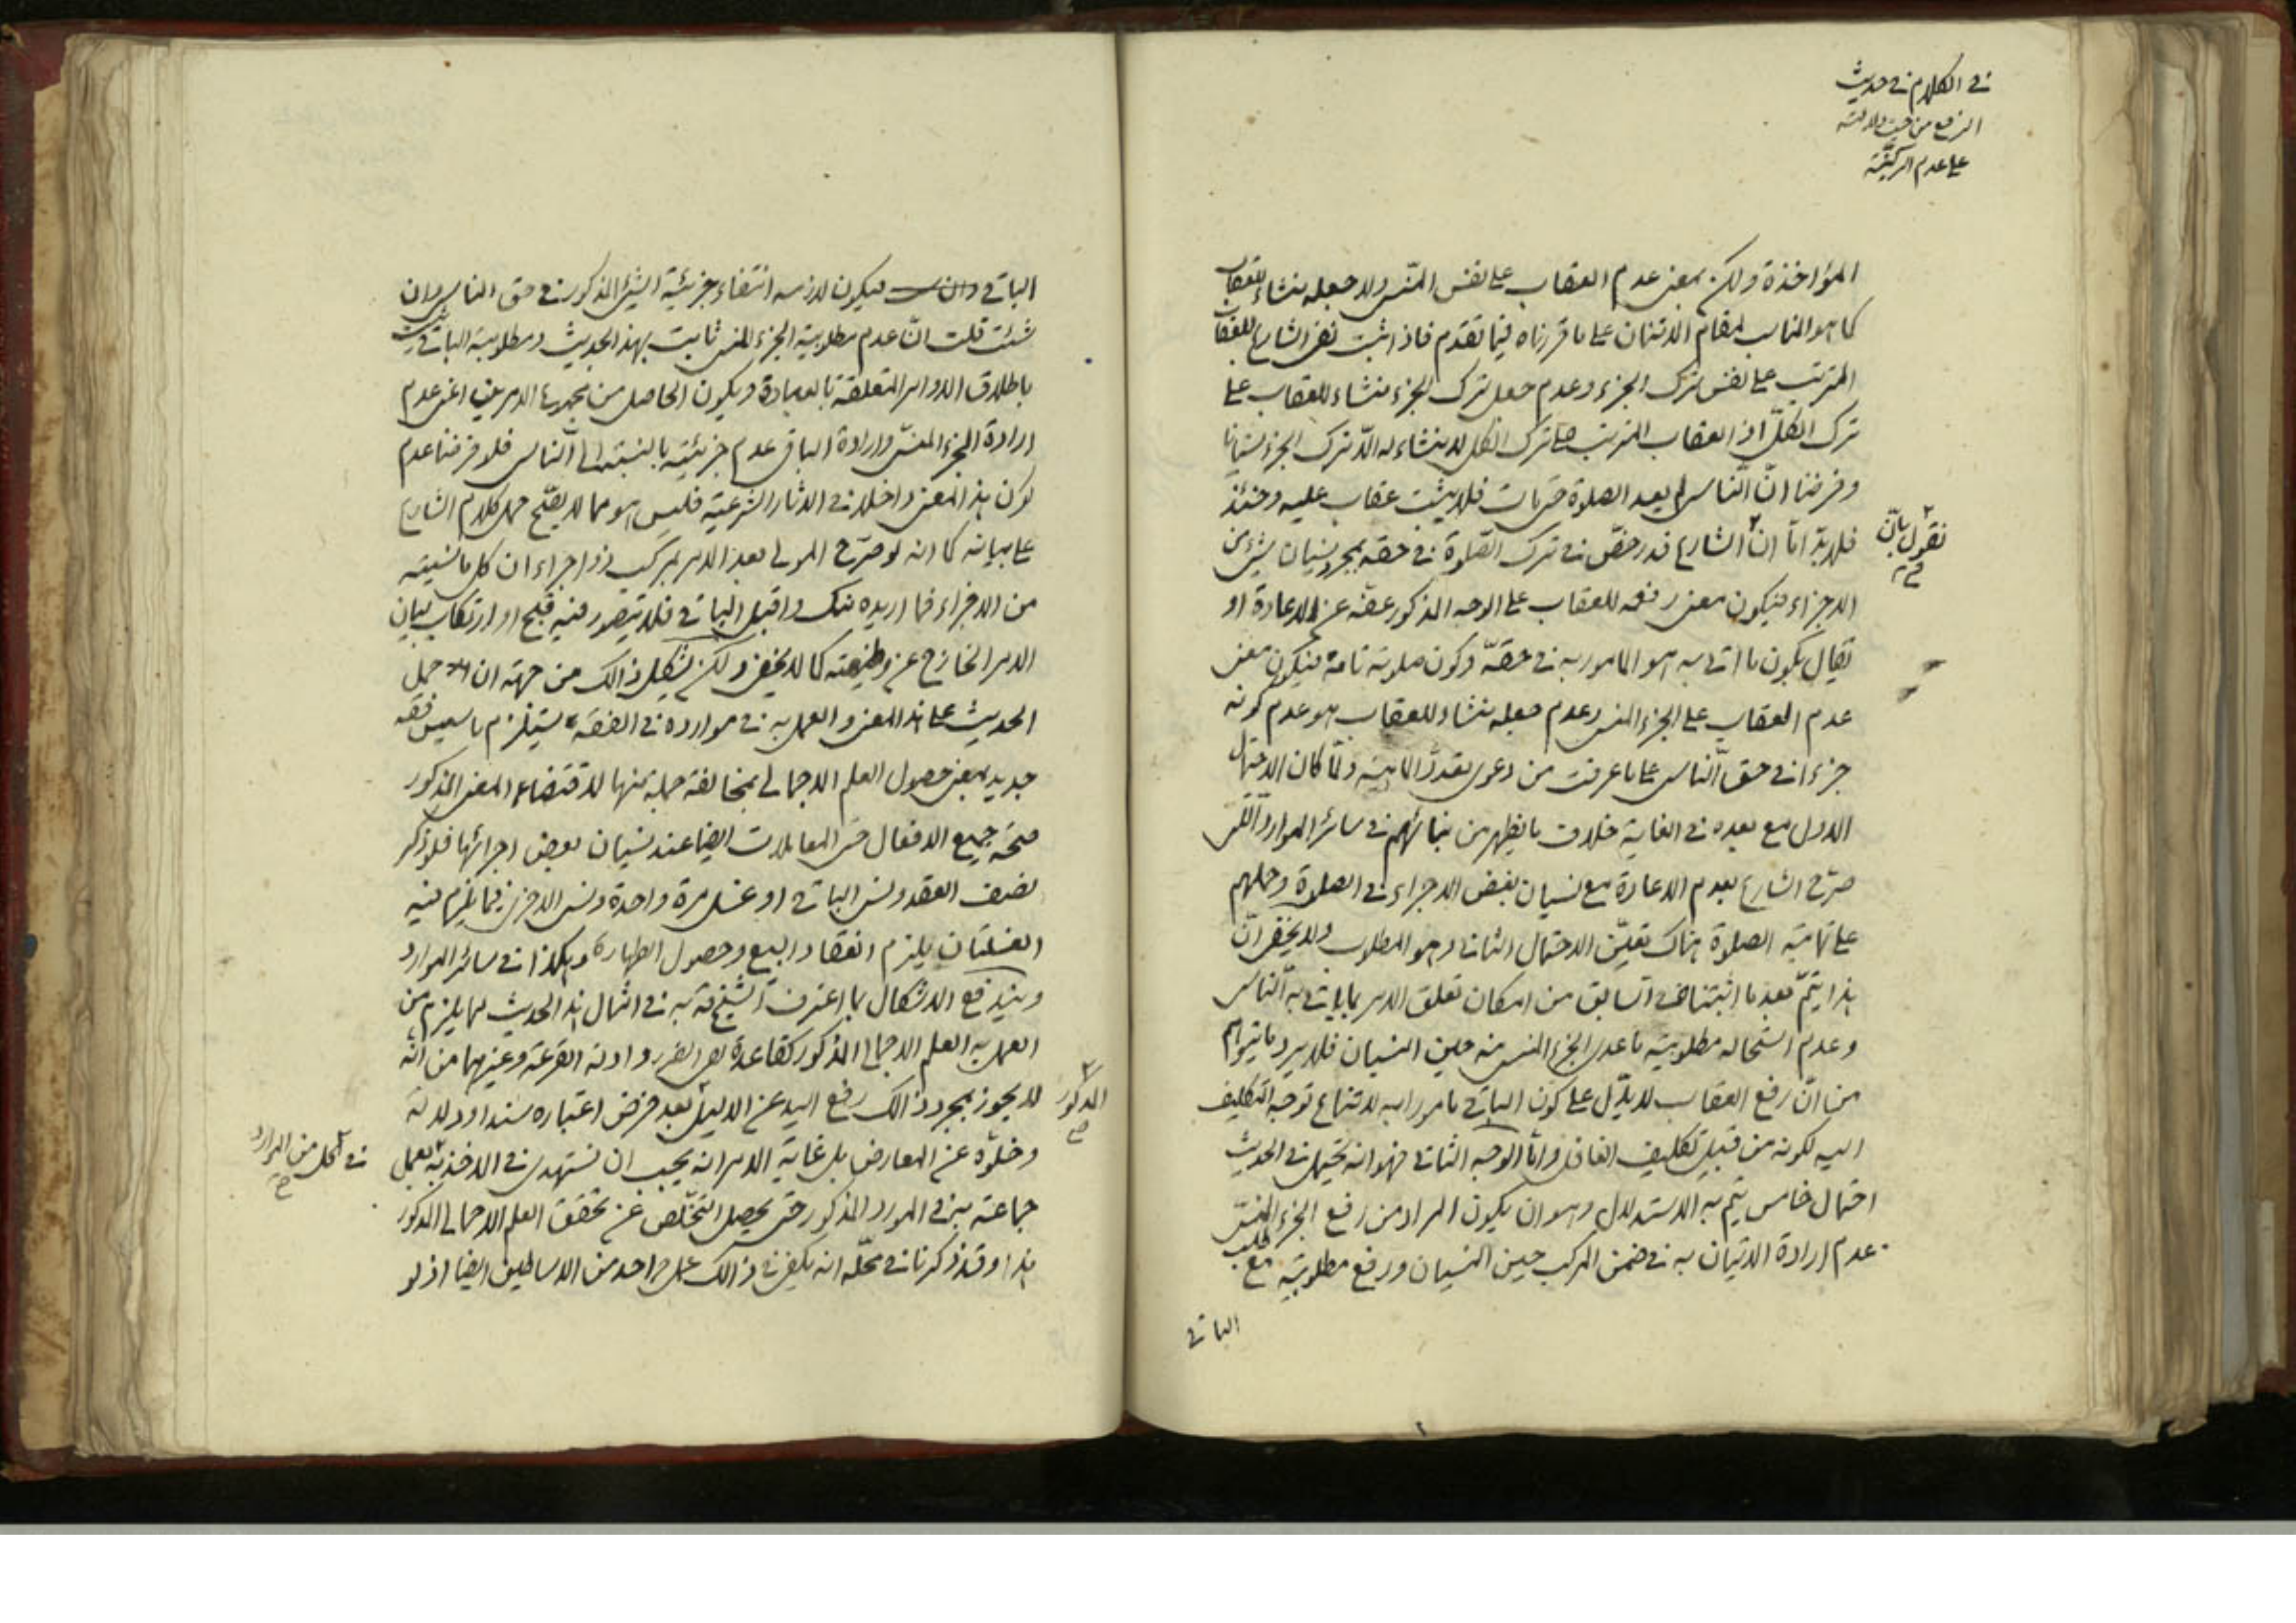 في الكلام في حديث
الرفع من حيث دلالته
على عدم الركنيّة
المؤاخذة ولكن بمعنى عدم العقاب على نفس المنسي ولا جعله منشاء للعقاب
كما هو المناسب لمقام الامتنان على ما قررناه فيما تقدم فاذا ثبت نفى الشارع للعقاب
المترتب على نفس ترك الجزء وعدم جعل ترك الجزء منشاء للعقاب على
ترك الكلّ اذ العقاب المترتب على ترك الكل لا منشاء له الّا ترك الجزء نسيانا
وفرضنا انّ النّاسى لم يعد الصلوة حتى مات فلا يثبت عقاب عليه وحينئذ
فلا بدّ امّا ان الشارع قد رخصّ في ترك الصّلوة في حقه بمجرد نسيان شئ من
نقول بانّ
صح
الاجزاء فيكون معنى رفعه للعقاب على الوجه المذكور عفوه عن الاعادة او
يقال بكون ما اتى به هو المامور به في حقّه وكون صلوته تامة فيكون معنى
عدم العقاب على الجزء المنسى وعدم جعله منشاء للعقاب هو عدم كونه
جزءا في حق النّاسى على ما عرفت من دعوى تعدّد الماهية ولمّا كان الاحتمال
الاول مع بعده في الغاية خلاف ما يظهر من بنائهم في سائر الموارد الّتى
صرّح الشارع بعدم الاعادة مع نسيان بعض الاجزاء في الصلوة وحملهم
على تماميّة الصلوة هناك تعيّن الاحتمال الثانى وهو المطلوب ولا يخفى انّ
هذا يتمّ بعد ما اثبتناه في السّابق من امكان تعلق الامر بما ياتى به النّاسى
وعدم استحالة مطلوبيّة ما عدى الجزء المنسى منه حين النسيان فلا يرد ما يتوهم
من انّ رفع العقاب لا يدّل على كون الباقى مامورا به لامتناع توجّه التكليف
اليه لكونه من قبيل تكليف الغافل وامّا الوجه الثانى فهو انه يحتمل في الحديث
احتمال خامس يتم به الاستدلال وهو ان يكون المراد من رفع الجزء المنسىّ
عدم ارادة الاتيان به في ضمن المركب حين النسيان ورفع مطلوبيته مع طلب
الباقي
الباقي فيكون لازمه انتفاء جزئيّة الشئ المذكور في حق الناسى وان
شئت قلت انّ عدم مطلوبية الجزء المنسى ثابت بهذا الحديث ومطلوبية الباقى يثبت
باطلاق الاوامر المتعلقة بالعبادة ويكون الحاصل من مجموع الامرين اعنى عدم
ارادة الجزء المنسىّ وارادة الباقى عدم جزئيّته بالنسبة الى النّاسى فلو فرضنا عدم
كون هذا المعنى داخلا في الاثار الشرعيّة فليس هو مما لا يصّح حمل كلام الشارع
على بيانه كما انه لو صرّح المولى بعد الامر بمركب ذو اجزاء ان كل ما نسيته
من الاجزاء فما اريده منك واقبل الباقى فلا يتصور فيه قبح او ارتكاب لبيان
الامر الخارج عن وظيفته كما لا يخفى ولكن يشكل ذالك من جهة ان حمل
الحديث على هذا المعنى والعمل به في موارده في الفقه يستلزم تاسيس فقه
جديد بمعنى حصول العلم الاجمالى بمخالفة جملة منها لاقتضاء المعنى المذكور
صحّة جميع الافعال حتى المعاملات ايضا عند نسيان بعض اجزائها فلو ذكر
نصف العقد ونسى الباقى او غسل مرة واحدة ونسى الاخرى فيما يلزم فيه
الغسلتان يلزم انعقاد البيع وحصول الطهارة وهكذا في سائر الموارد
ويندفع الاشكال بما اعترف الشّيخ قه به في امثال هذا الحديث مما يلزم من
العمل به العلم الاجمالى المذكور كقاعدة نفى الضرر وادلة القرعة وغيرهما من انّه
لا يجوز بمجرد ذالك رفع اليد عن الدليل بعد فرض اعتباره سندا ودلالة
المذكور
صح
وخلوّه عن المعارض بل غاية الامر انه يجب ان نستهدى في الاخذ به بعمل
في كل من الموارد
صح
جماعة به في المورد المذكور حتى يحصل التخلّص عن تحقق العلم الاجمالى المذكور
هذا وقد ذكرنا في محلّه انه يكفى في ذالك عمل واحد من الاساطين ايضا اذ لو